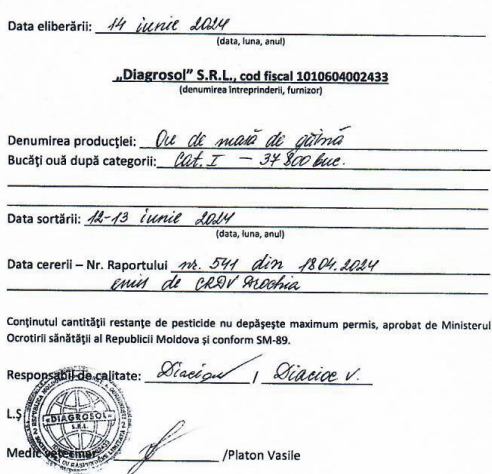 Data eliberării: 14 iunie 2024
(data, luna, anul)
„Diagrosol” S.R.L., cod fiscal 1010604002433
(denumirea întreprinderii, furnizor)
Denumirea producției: Ou de masă de găină
Bucăți ouă după categorii: Cat. I — 37 800 buc.
Data sortării: 12-13 iunie 2024
(data, luna, anul)
Data cererii – Nr. Raportului nr. 541 din 18.04.2024
emis de CRDV
Conținutul cantității restanțe de pesticide nu depășește maximum permis, aprobat de Ministerul
Ocrotirii sănătății al Republicii Moldova și conform SM-89.
Responsabil de calitate: / Diacioc V.
L.Ș
«DIAGROSOL»
S.R.L.
Medic veterinar /Platon Vasile